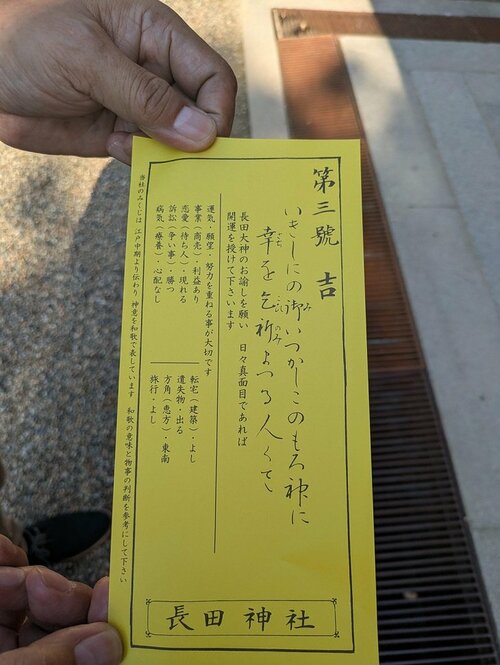 第三號 吉
いきしにの御いつかしこのもろ神に
幸を乞祈まつる人くて
長田大神のお諭しを願い 日々真面目であれば
開運を授けて下さいます
運気・願望・努力を重ねる事が大切です
事業(商売)・利益あり
恋愛(待ち人)・現れる
訴訟(争い事)・勝つ
病気(療養)・心配なし
転宅(建築)・よし
遺失物・出る
方角(恵方)・東南
旅行・よし
当社のみくじは 江戸中期より伝わり 神意を和歌で表しています 和歌の意味と物事の判断を参考にして下さい
長田神社